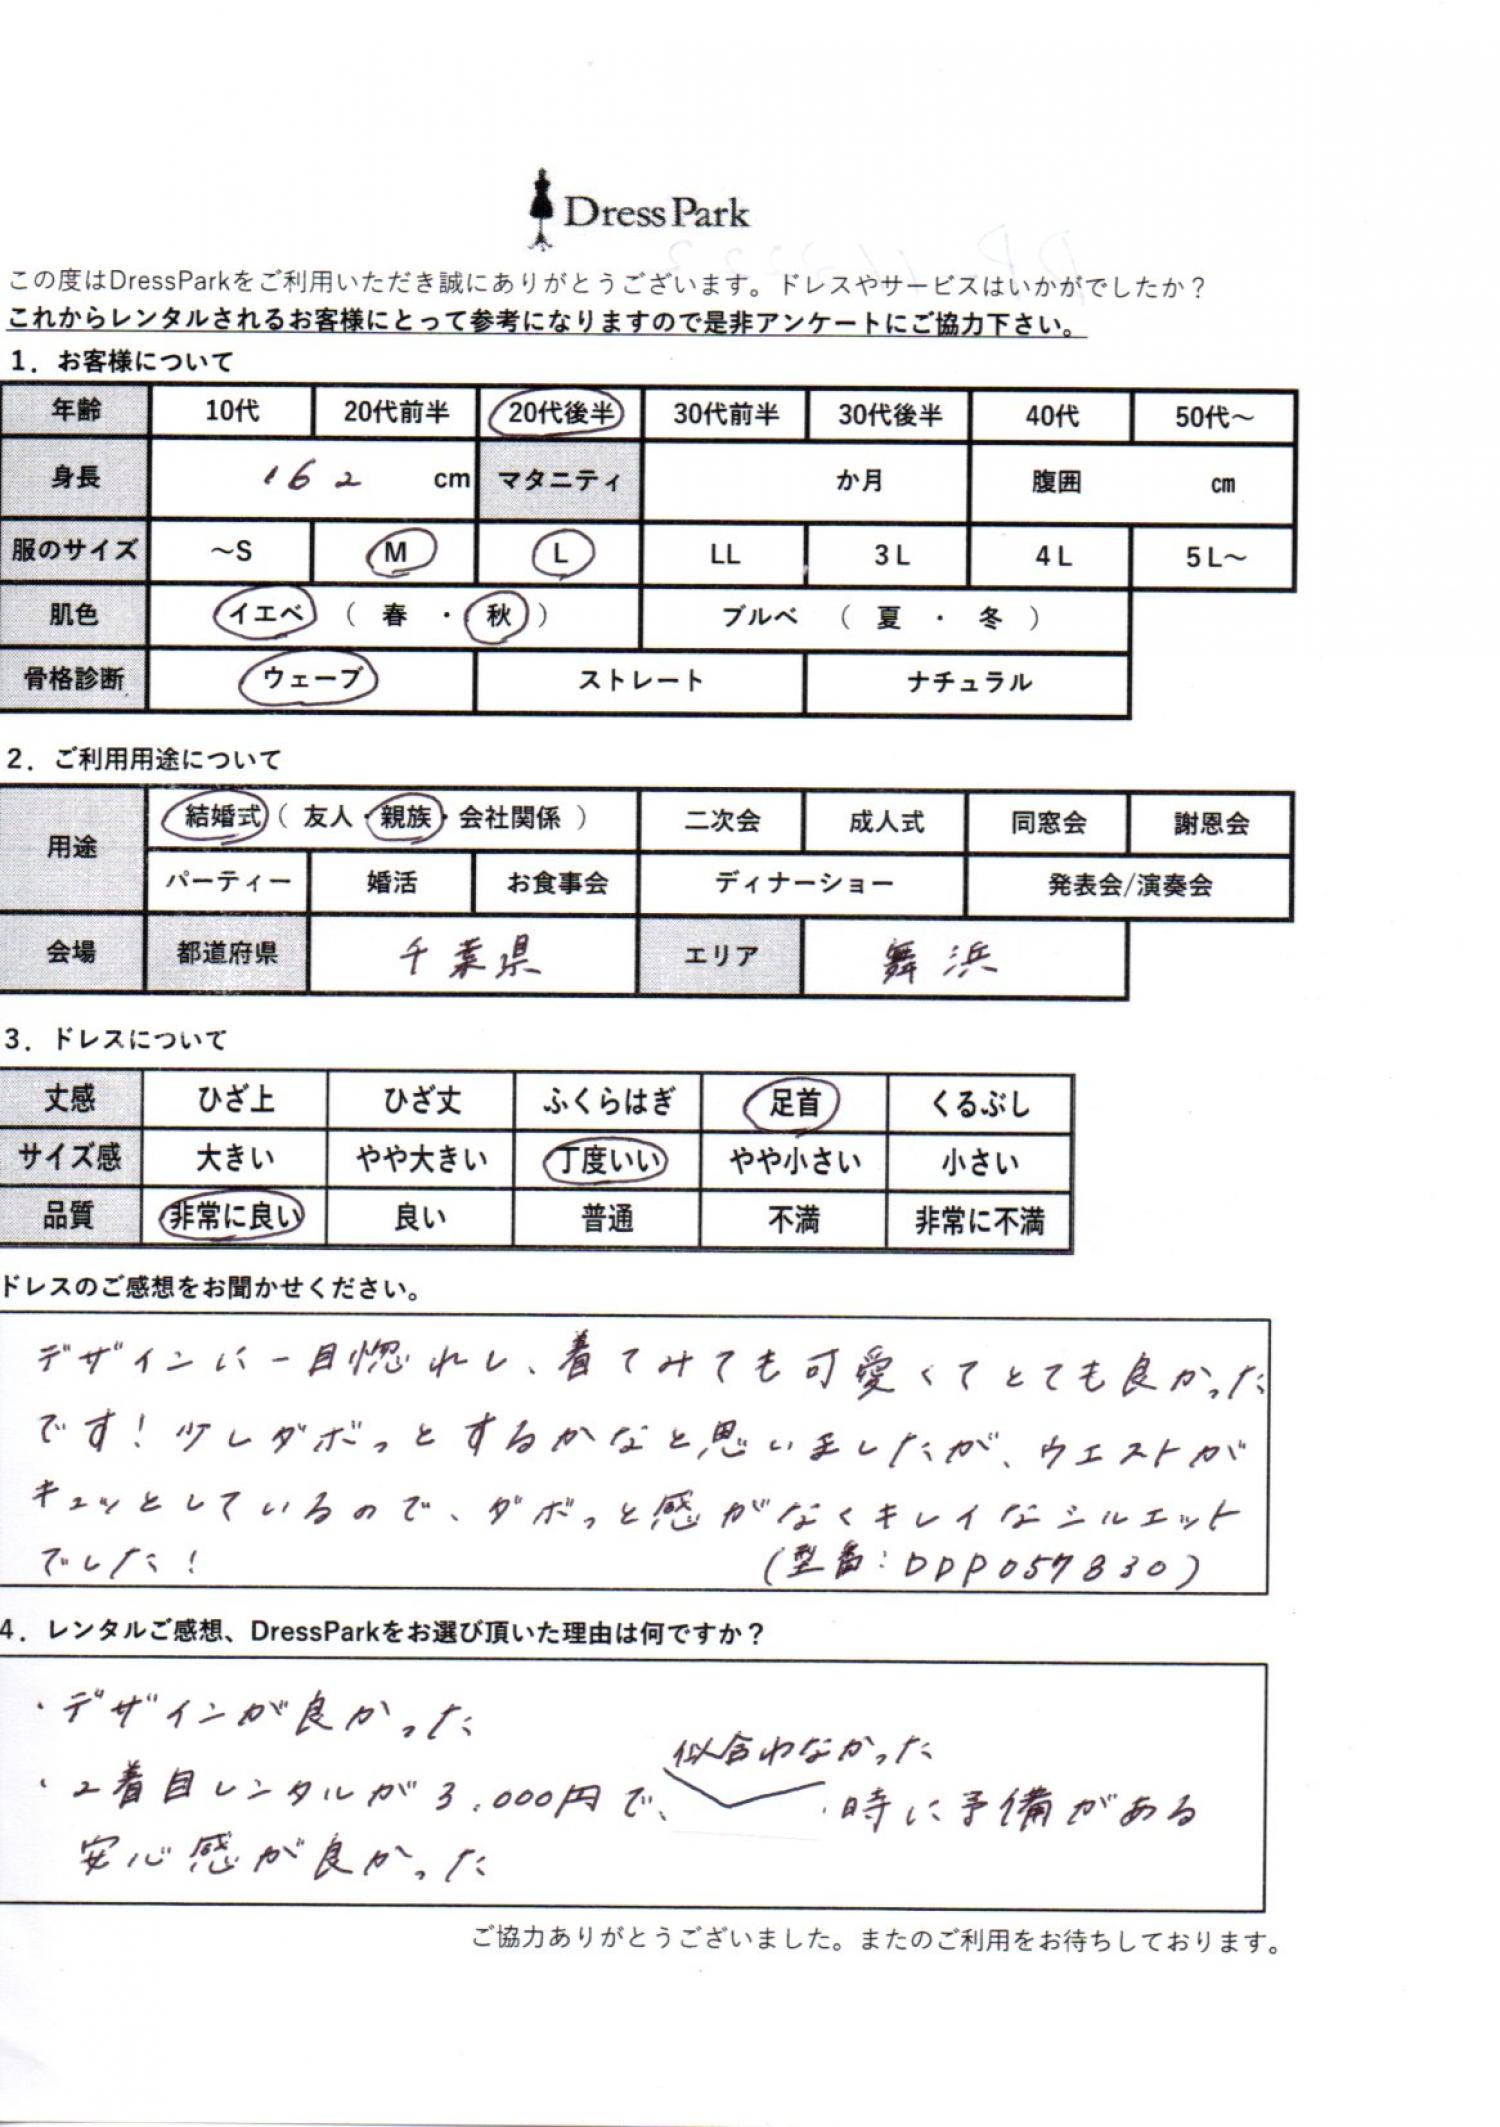 Dress Park
この度はDressParkをご利用いただき誠にありがとうございます。ドレスやサービスはいかがでしたか？
これからレンタルされるお客様にとって参考になりますので是非アンケートにご協力下さい。
1．お客様について
年齢 10代 20代前半 20代後半 30代前半 30代後半 40代 50代～
身長 162 cm マタニティ か月 腹囲 cm
服のサイズ ～S M L LL 3L 4L 5L～
肌色 イエベ （ 春 ・ 秋 ） ブルベ （ 夏 ・ 冬 ）
骨格診断 ウェーブ ストレート ナチュラル
2．ご利用用途について
用途 結婚式（ 友人・親族・会社関係 ） 二次会 成人式 同窓会 謝恩会
パーティー 婚活 お食事会 ディナーショー 発表会/演奏会
会場 都道府県 千葉県 エリア 舞浜
3．ドレスについて
丈感 ひざ上 ひざ丈 ふくらはぎ 足首 くるぶし
サイズ感 大きい やや大きい 丁度いい やや小さい 小さい
品質 非常に良い 良い 普通 不満 非常に不満
ドレスのご感想をお聞かせください。
デザインに一目惚れし、着てみても可愛くてとても良かった
です！少しダボっとするかなと思いましたが、ウエストが
キュッとしているので、ダボっと感がなくキレイなシルエット
でした！ (型番：DDP057830)
4．レンタルご感想、DressParkをお選び頂いた理由は何ですか？
・デザインが良かった
・2着目レンタルが3,000円で、似合わなかった時に予備がある
安心感が良かった
ご協力ありがとうございました。またのご利用をお待ちしております。